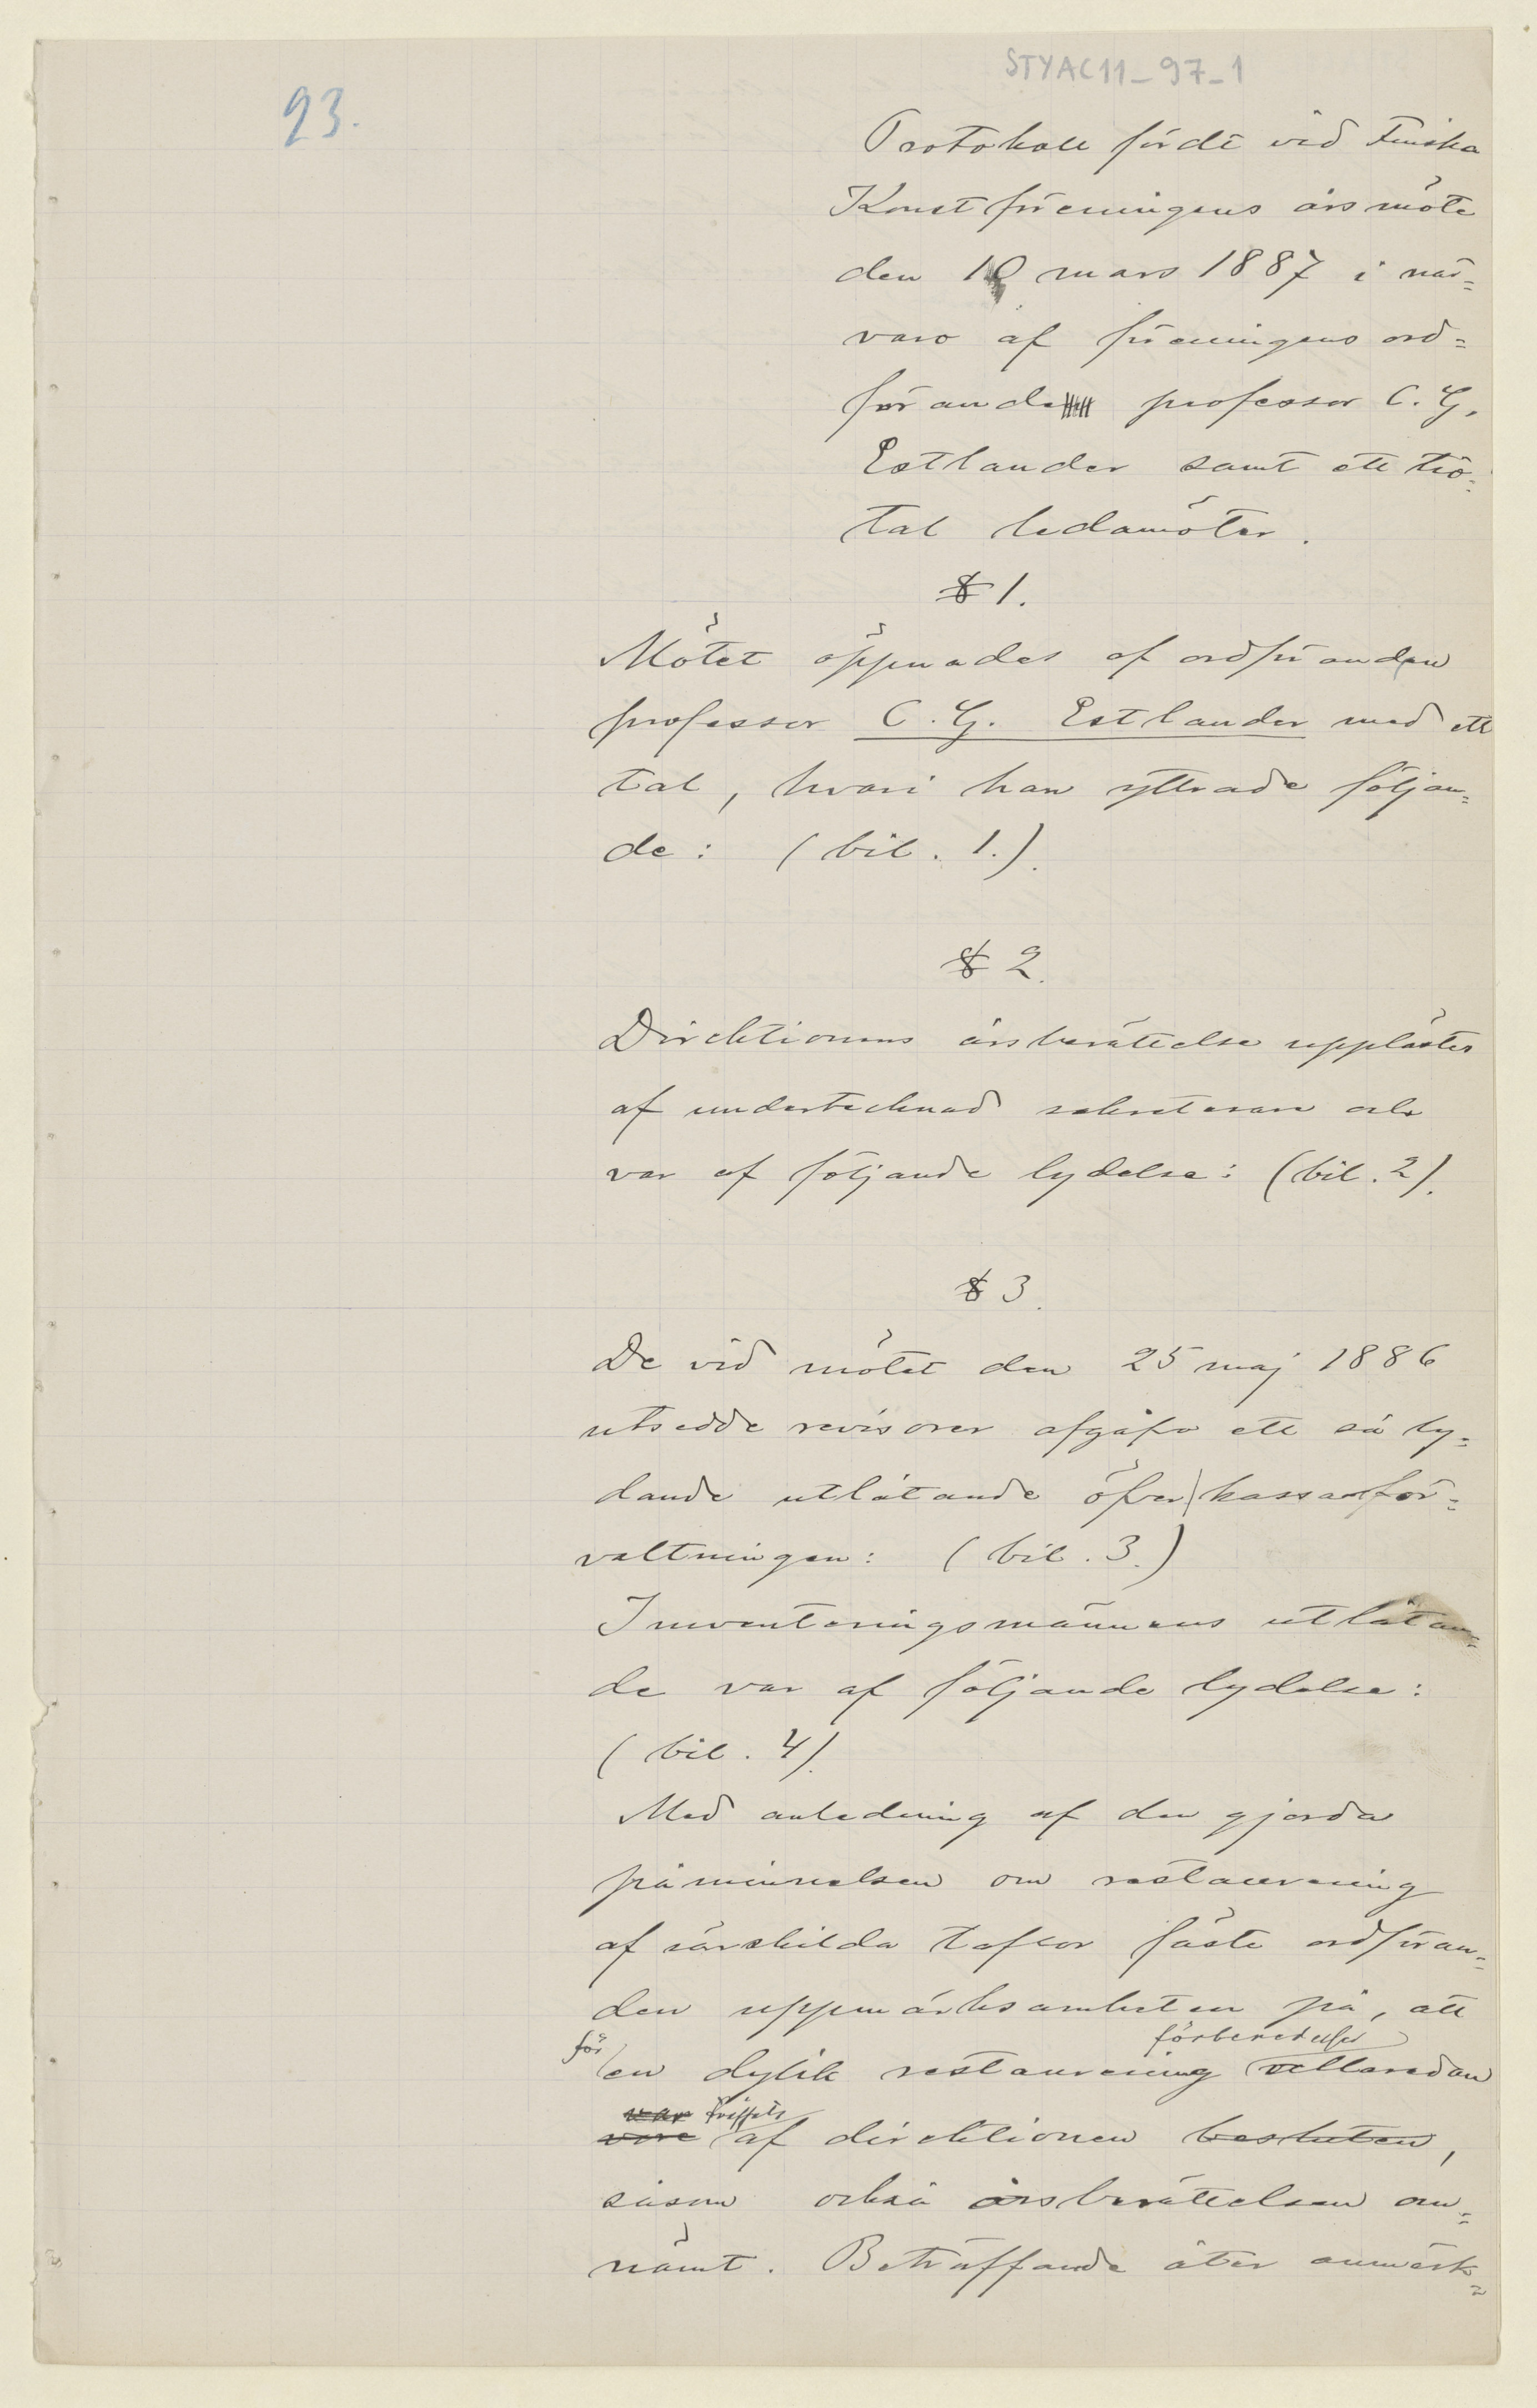 STYAC11_97_1
93.
Protokoll fördt vid Finska
Konstföreningens årsmöte
den 10 mars 1887 i när=
varo af föreningens ord=
förande professor C. G.
Estlander samt ett tio=
tal ledamöter.
§ 1.
Mötet öppnades af ordföranden
professor C. G. Estlander med ett
tal, hvari han yttrade följan=
de: (bil. 1.).
§ 2.
Direktionens årsberättelse upplästes
af undertecknad sekreterare och
var af följande lydelse: (bil. 2).
§ 3.
De vid mötet den 25 maj 1886
utsedde revisorer afgåfvo ett så ly=
dande utlåtande öfver kassaför=
valtningen: (bil. 3.)
Inventeringsmännens utlåtan=
de var af följande lydelse:
(bil. 4).
Med anledning af den gjorda
påminnelsen om restaurering
af särskilda taflor fäste ordföran=
den uppmärksamheten på, att
för förberedelser
en dylik restaurering allaredan
var träffats
vore af direktionen besluten,
såsom också årsberättelsen om=
nämt. Beträffande åter anmärk=